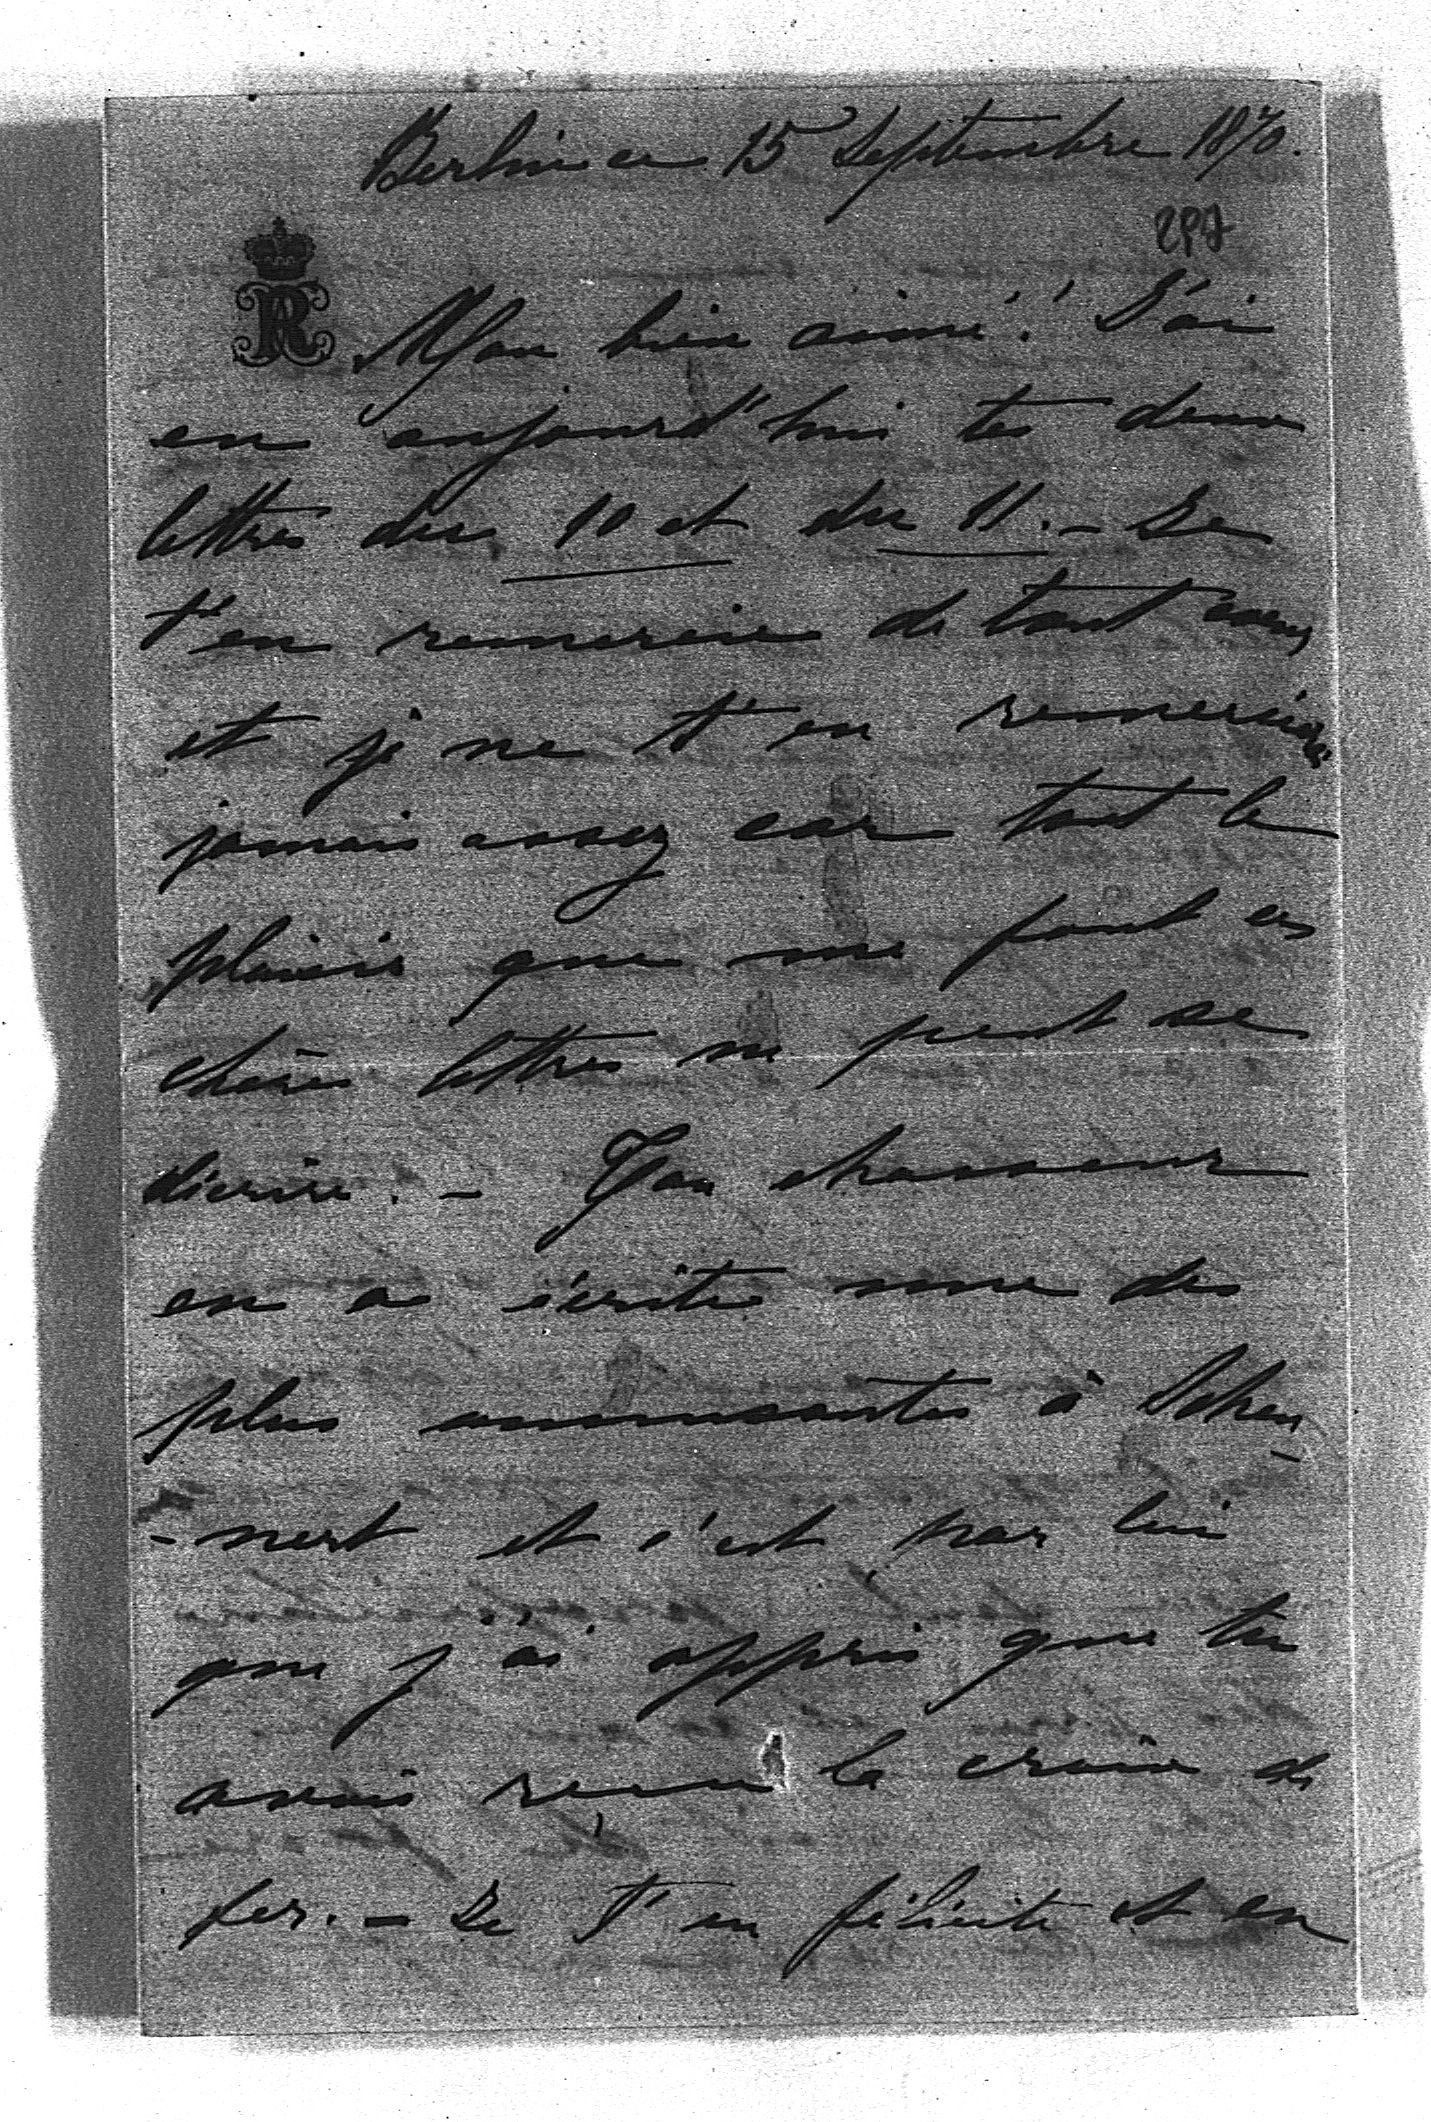 Berlin ce 15 Septembre 1870.
297
R
Mon bien aimé! J'ai
eu aujourd'hui tes deux
lettres du 10 et du 11. – Je
t'en remercie de tout coeur
et je ne t'en remercierai
jamais assez car tout le
plaisir que me font ces
chères lettres ne peut se
décrire. – Ton chasseur
en a écrite une des
plus amusantes à Schen-
-nert et c'est par lui
que j'ai appris que tu
avais reçu la croix de
fer. – Je t'en félicite et en